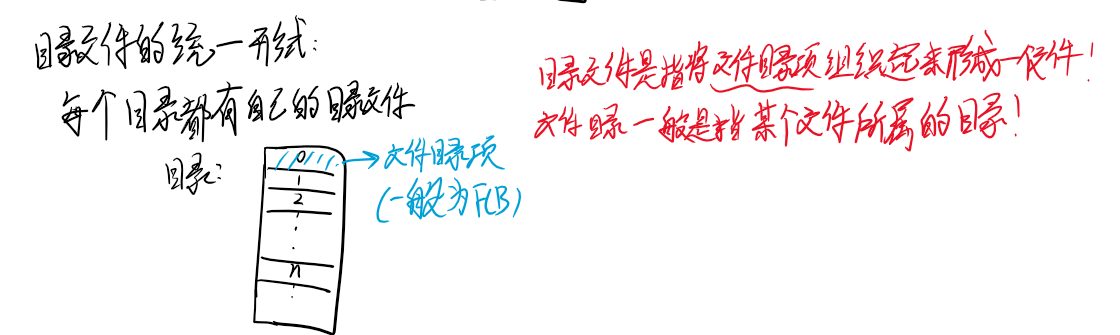 目录文件的统一形式：
每个目录都有自己的目录文件
目录：
0
1
2
n
文件目录项
(一般为FCB)
目录文件是指将文件目录项组织起来形成一份文件！
文件目录一般是指某个文件所属的目录！